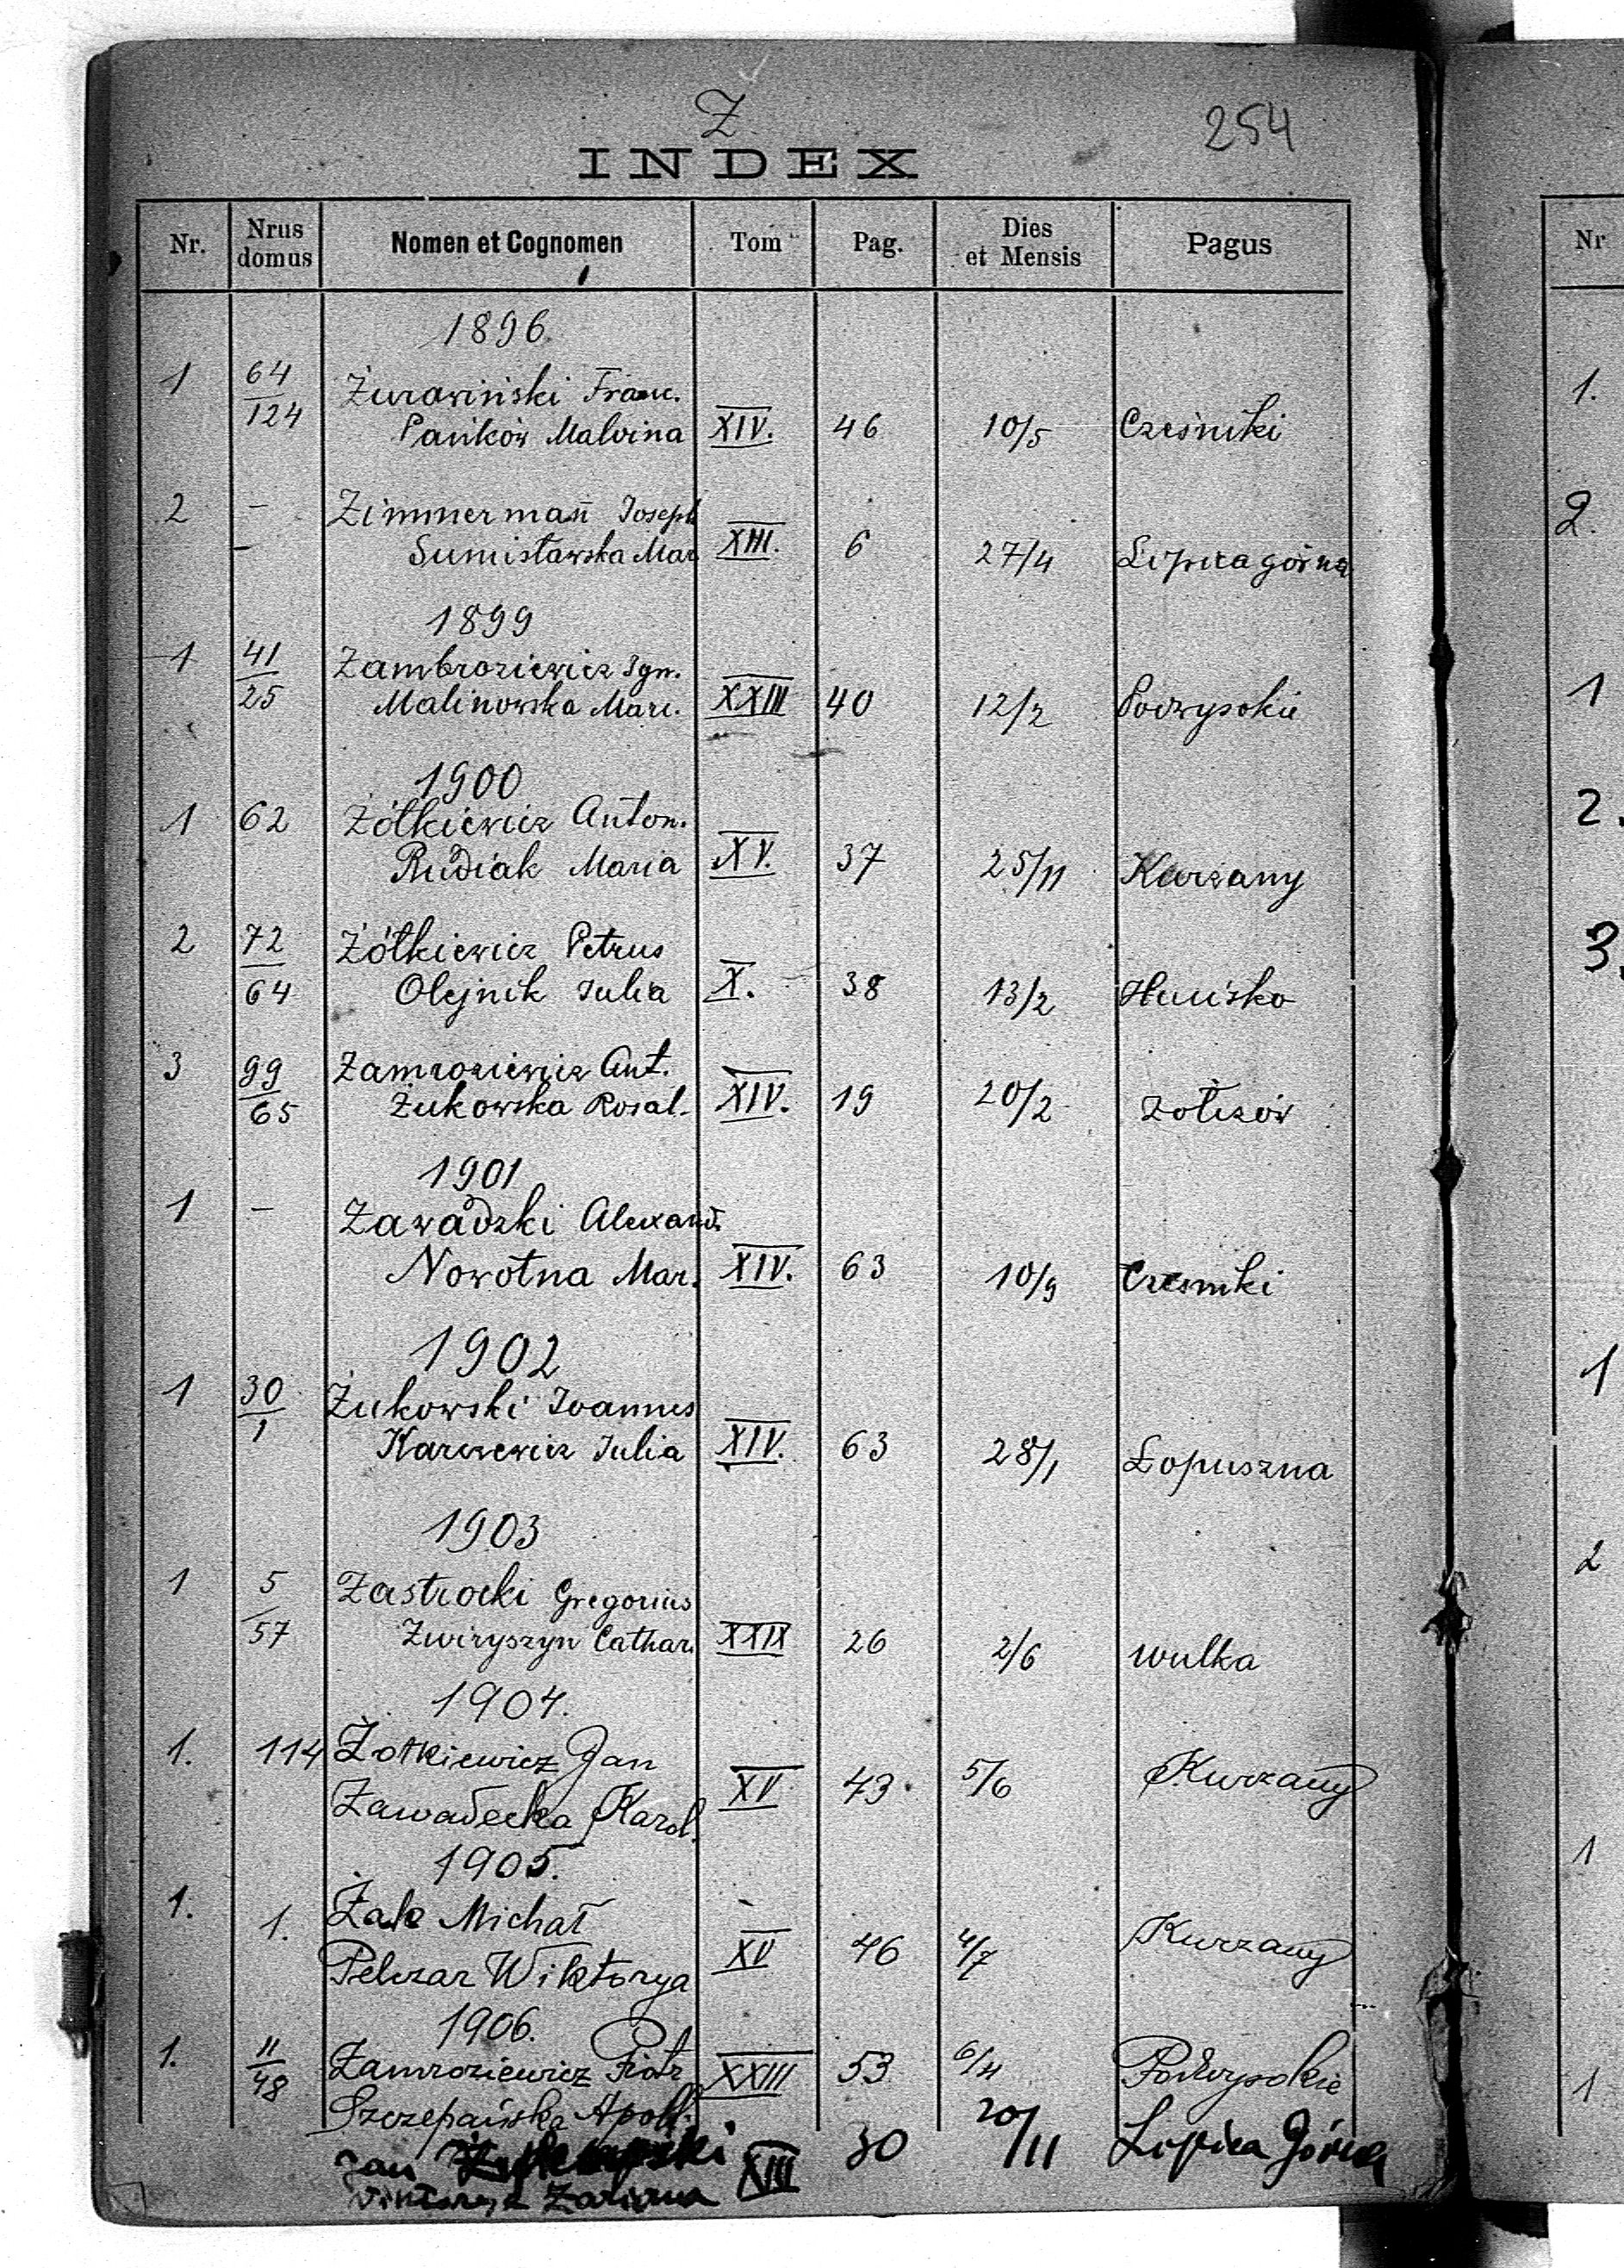 Z
254
INDEX
Nr. Nrus domus Nomen et Cognomen Tom Pag. Dies et Mensis Pagus
1896.
1 64 Żurawiński Franc.
124 Pańków Malvina XIV. 46 10/5 Cześniki
2 - Zimmermañ Joseph
- Sumisławska Mar XIII. 6 27/4 Lipica górna
1899
1 41 Zambroziewicz Ign.
25 Malinowska Mari. XXIII 40 12/2 Podwysokie
1900
1 62 Żółkiewicz Anton.
Rudiak Maria XV. 37 25/11 Kurzany
2 72 Żółkiewicz Petrus
64 Olejnik Julia X. 38 13/2 Hucisko
3 99 Zamroziewicz Ant.
65 Żukowska Rosal. XIV. 19 20/2 Żołczów
1901
1 - Zawadzki Alexand.
Nowotna Mar. XIV. 63 10/9 Czesniki
1902
1 30 Żukowski Joannes
1 Karczewicz Julia XIV. 63 28/1 Łopuszna
1903
1 5 Zastrocki Gregorius
57 Zwiryszyn Cathar. XXIX 26 2/6 Wulka
1904.
1. 114 Żołkiewicz Jan
Zawadecka Karol. XV 43. 5/6 Kurzany
1905.
1. 1. Żak Michał
Pelczar Wiktorya XV 46 4/7 Kurzany
1906.
1. 11 Zamroziewicz Piotr XXIII 53 6/4 Podwysokie
48 Szczepańska Apoll.
Jan XIII 30 20/11 Lipica Górna
Wiktorya
Nr
1.
2.
1
2.
3.
1
2
1
1